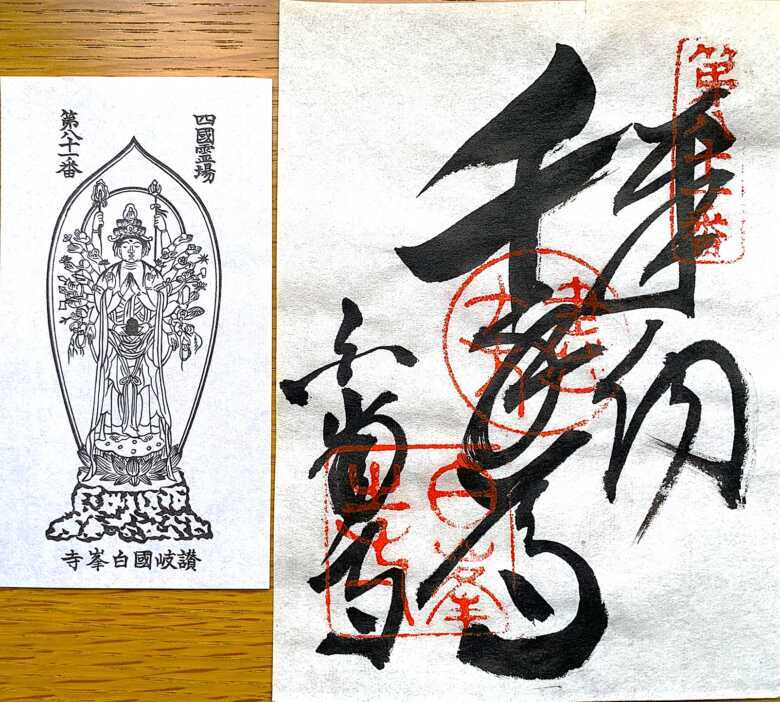 四國霊場
第八十一番
讃岐國白峯寺
第八十一番
奉納
千手
白峯寺